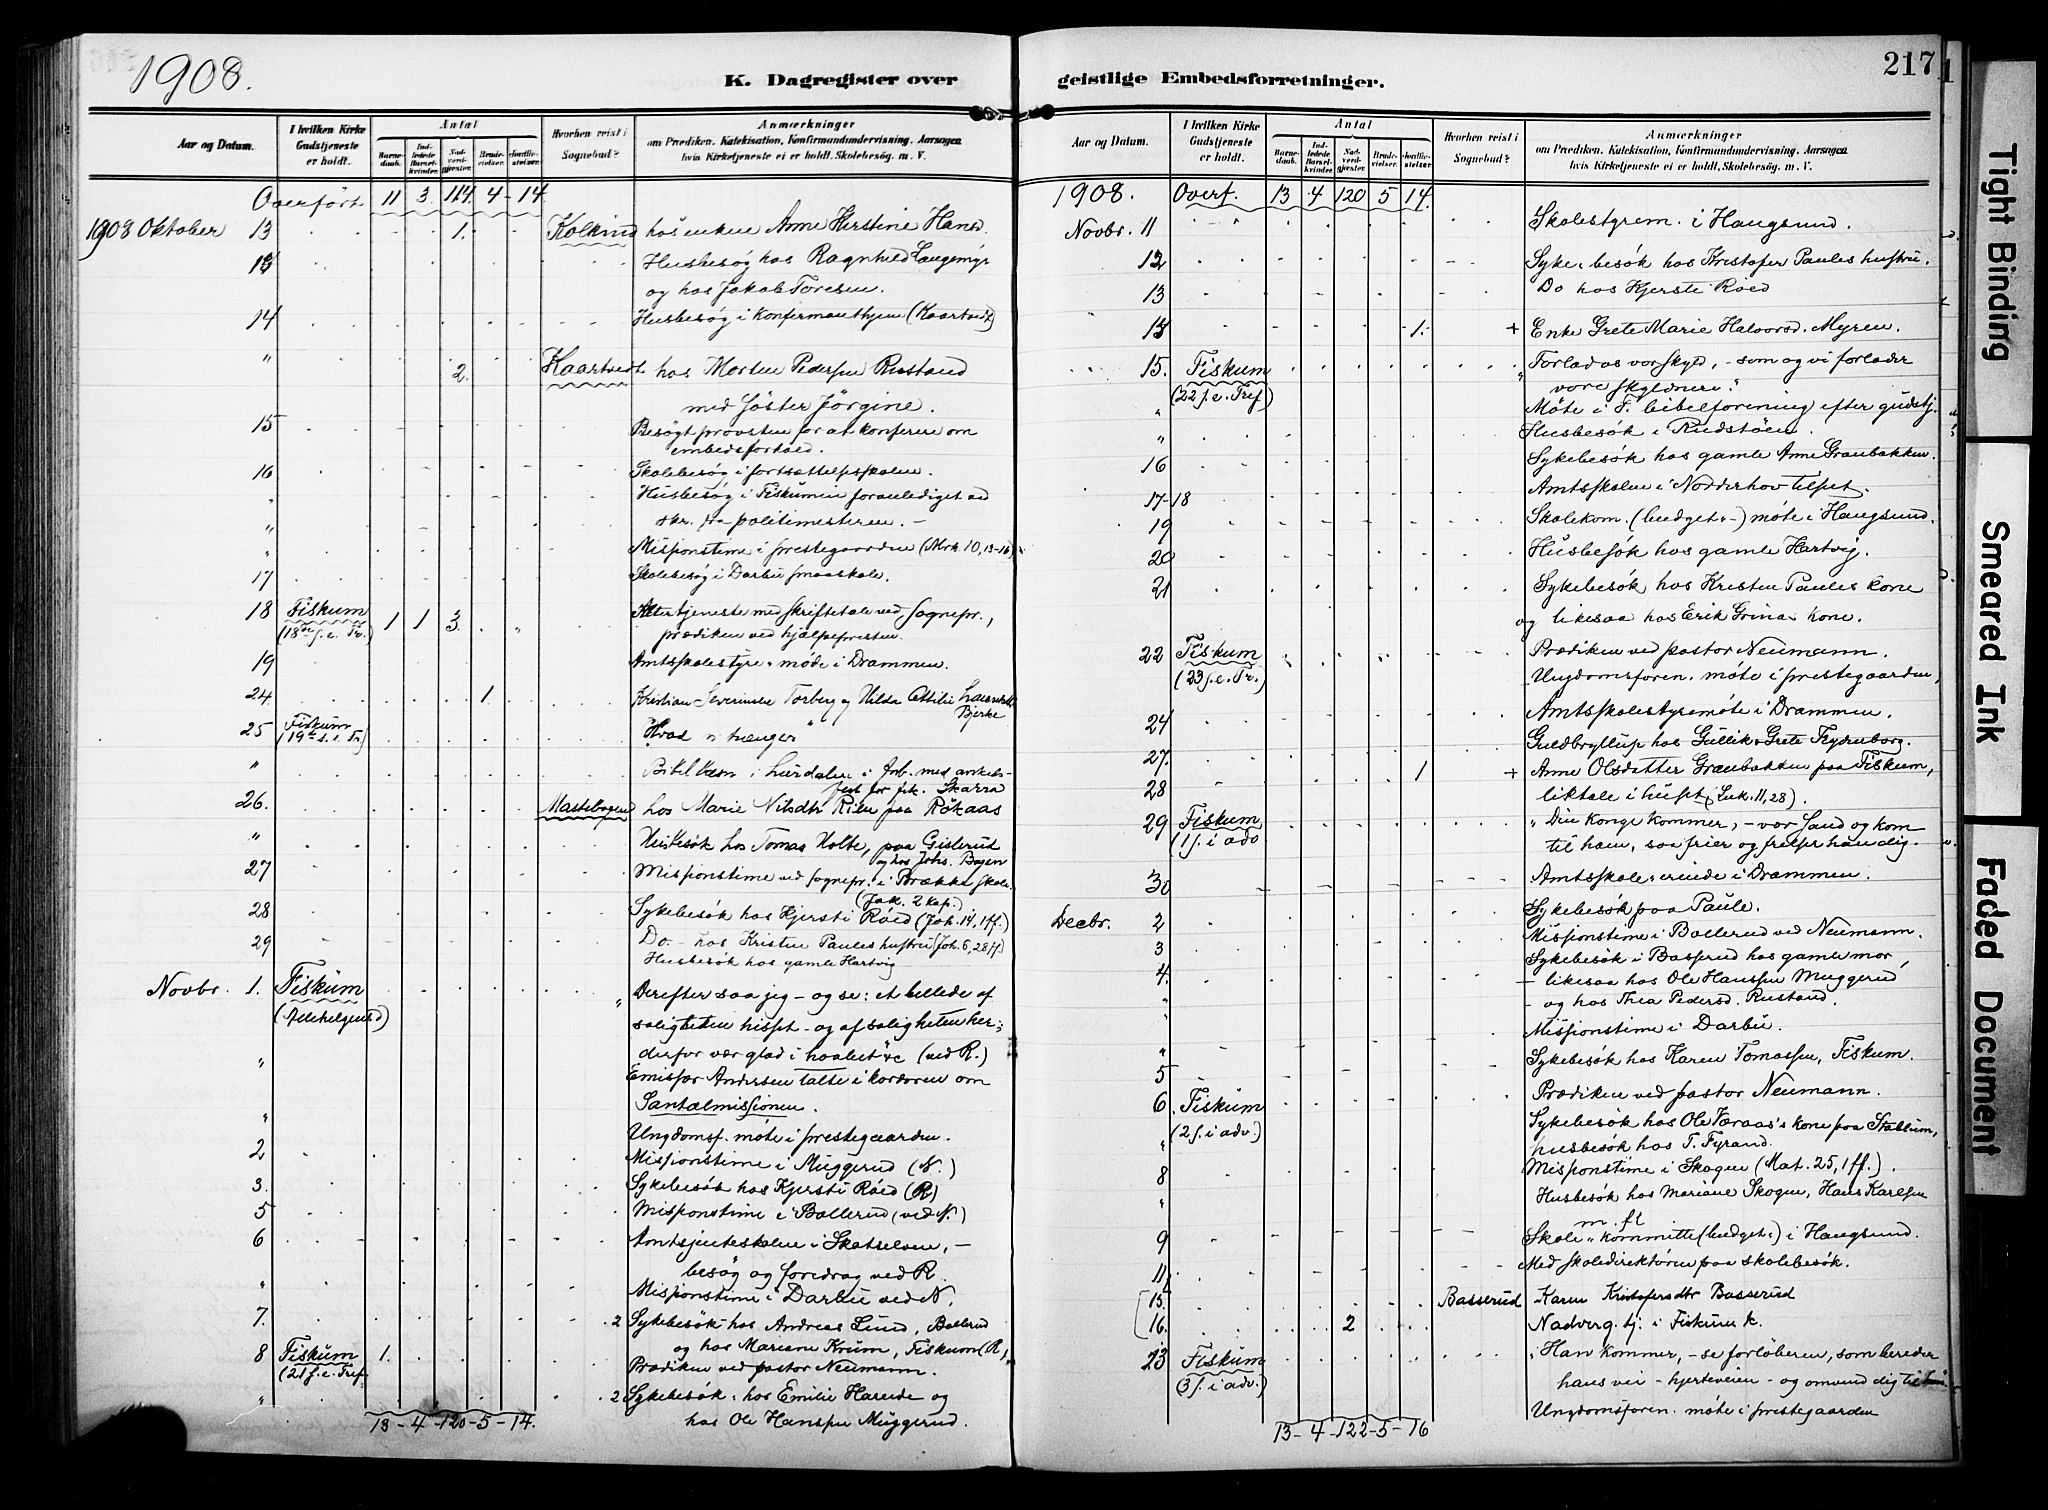 1908.
K. Dagregister over
Aar og Datum.
I hvilken Kirke Gudstjeneste er holdt.
Antal
Barnedaab.
Indledede Barselkvinder.
Nadverdgjester.
Brudevielser.
Jordfæstelser.
Hvorhen reist i Sognebud?
Anmærkninger
om Prædiken, Katekisation, Konfirmandundervisning, Aarsagen
hvis Kirketjeneste ei er holdt, Skolebesøg. m. V.
Overført 11 3. 114. 4 - 14.
1908 Oktober 13 1. Kolkind hos enken Anne Kirstine Hansd.
13 Husbesøg hos Ragnhild Langemyr
og hos Jakob Toresen.
14 Husbesøg i Konfirmanthjem (Kaartvedt)
" 2. Kaartvedt hos Morten Pedersen Rustand
med søster Jörgine.
15 Besøgt provsten for at konferere om
embedsforhold.
16 Skolebesøg i fortsættelsesskolen.
" Husbesøg i Fiskumen foranlediget ved
skr. fra politimesteren. -
" Missionstime i prestegaarden (Mrk. 10, 13-16)
17 Skolebesøg i Darbu smaaskole.
18 Fiskum 1 1 3. Altertjeneste med skriftetale ved sognepr.,
(18de s. e. Tr.) prædiken ved hjælpepresten.
19 Amtsskolestyre-møde i Drammen.
24. 1 Kristian Severinsen Torberg og Hilda Otilie
Bjerke
25 Fiskum "Hvad vi trænger"
(19de s. e. Tr)
" i Lurdalen i forb. med ankels-
fest for frk. Skarra
26. Mastebogend hos Marie Nilsdtr Rilen paa Rökaas
" Husbesök hos Tomas Holte, paa Gislerud
og hos Johs. Bøgen
27 Missionstime ved sognepr. i Brække skole.
(Jak. 2 kap.)
28 Sykebesök hos Kjersti Röed (Joh. 14, 1 ff.)
29 Do. - hos Kristen Paules hustru (Joh. 6, 28 ff.)
Husbesök hos gamle Hartvig
Novbr. 1. Fiskum "Derefter saa jeg - og se: et billede af
(Allehelgensd) saligheten hisset - og af saligheten her;
derfor vær glad i haabet" &c (ved R.)
" Emissær Andersen talte i kordøren om
Santalmissionen.
" Ungdomsf. möte i prestegaarden.
2 Missionstime i Muggerud (N.)
3. Sykebesök hos Kjersti Röed (R)
5 Missionstime i Bollerud (ved N.)
6 Amtsjenteskolen i Skotselven, -
besög og foredrag ved R.
" Missionstime i Darbu ved N.
7. 2 Sykebesök hos Andreas Lund, Bollerud
og hos Mariane Krum, Fiskum (R)
8 Fiskum 1. Prædiken ved pastor Neumann.
(21 s. e. Tref.
" 2 Sykebesök: hos Emilie Harede og
hos Ole Hanssen Muggerud.
13 - 4 - 120 - 5 - 14.
217
geistlige Embedsforretninger.
Aar og Datum.
I hvilken Kirke Gudstjeneste er holdt.
Antal
Barnedaab.
Indledede Barselkvinder.
Nadverdgjester.
Brudevielser.
Jordfæstelser.
Hvorhen reist i Sognebud?
Anmærkninger
om Prædiken, Katekisation, Konfirmandundervisning, Aarsagen
hvis Kirketjeneste ei er holdt, Skolebesøg. m. V.
1908. Overf. 13 4 120 5 14.
Novbr. 11 Skolestyrem. i Haugsund.
12 Syke-besök hos Kristofer Paules hustru.
13 Do hos Kjersti Röed
13 1. + Enke Grete Marie Halvorsd. Myren.
15. Fiskum "Forlad os vor skyld, - som og vi forlader
(22 s. e. Tref) vore skyldnere."
" Möte i F. bibelforening efter gudstj.
" Husbesök i Rudstöen.
16 Sykebesök hos gamle Anne Granbakken.
17-18 Amtsskolen i Nordderhov tilset.
19 Skolekom. (budget-) möte i Haugsund.
20 Husbesök hos gamle Hartvig.
21 Sykebesök hos Kristen Paules kone
og likesaa hos Erik Grina's kone.
22 Fiskum Prædiken ved pastor Neumann.
(23 s. e. Tr.) Ungdomsforen. möte i prestegaarden,
24 Amtsskolestyremöte i Drammen.
27. Guldbryllup hos Gullik & Grete Frydenborg.
28 1 + Anne Olsdatter Grænbakken paa Fiskum,
liktale i huset (Luk. 11, 28).
29 Fiskum "Din konge kommer, - vær sand og kom
(1 s. i adv til ham, saa frier og frelser han dig.
30 Amtsskole-ærende i Drammen.
Decbr. 2 Sykebesök paa Paule.
3 Missionstime i Bollerud ved Neumann.
4. Sykebesök i Basserud hos gamle mor,
- likesaa hos Ole Hanssen Muggerud
- og hos Thea Pedersd. Rustand.
" Missionstime i Darbu.
5 Sykebesök hos Karen Tomassen, Fiskum.
6 Fiskum Prædiken ved pastor Neumann.
(2 s. i adv.) Sykebesök hos Ole Væraas's kone paa Stablum,
" husbesök hos T. Fyrand.
8 Missionstime i Skogen (Mat. 25, 1 ff.).
" Husbesök hos Mariane Skogen, Hans Karlsen
m. fl
9 Skole-kommitte (budget-) i Haugsund.
11 Med skoledirektören paa skolebesök.
15. Basserud Karen Kristofersdtr Basserud
16. 2 Nadverg. tj. i Fiskum k.
13 Fiskum "Han kommer, - se forløberen, som bereder
(3 s. i adv.) hans vei - hjerteveien - og omvend dig til
Ungdomsforen. möte i prestegaarden
13 - 4 - 122 - 5 - 16
Tight Binding
Smeared Ink
Faded Document